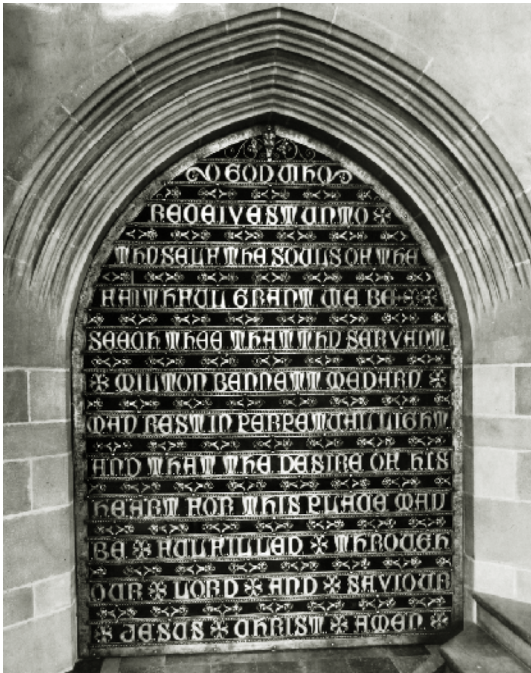 O GOD WHO
RECEIVEST UNTO
THYSELF THE SOULS OF THE
FAITHFUL GRANT WE BE
SEECH THEE THAT THY SERVANT
MILTON BENNETT MEDARY
MAY REST IN PERPETUAL LIGHT
AND THAT THE DESIRE OF HIS
HEART FOR THIS PLACE MAY
BE FULFILLED THROUGH
OUR LORD AND SAVIOUR
JESUS CHRIST AMEN